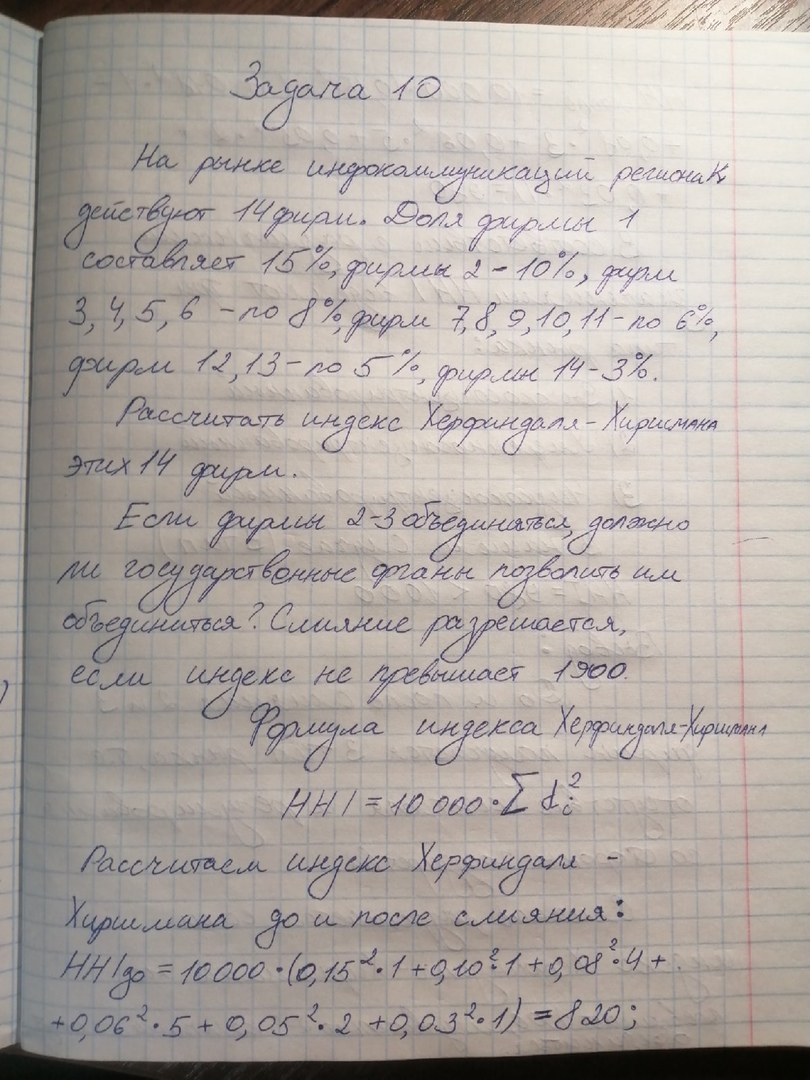 Задача 10
На рынке инфокоммуникаций региона К
действуют 14 фирм. Доля фирмы 1
составляет 15%, фирмы 2 - 10%, фирм
3, 4, 5, 6 - по 8%, фирм 7, 8, 9, 10, 11 - по 6%,
фирм 12, 13 - по 5%, фирмы 14 - 3%.
Рассчитать индекс Херфиндаля - Хиршмана
этих 14 фирм.
Если фирмы 2-3 объединяться, должно
ли государственные органы позволить им
объединиться? Слияние разрешается,
если индекс не превышает 1900.
Формула индекса Херфиндаля-Хиршмана
HHI = 10 000 · ∑ di²
Рассчитаем индекс Херфиндаля -
Хиршмана до и после слияния:
HHIдо = 10 000 · (0,15² · 1 + 0,10² · 1 + 0,08² · 4 +
+ 0,06² · 5 + 0,05² · 2 + 0,03² · 1) = 820;